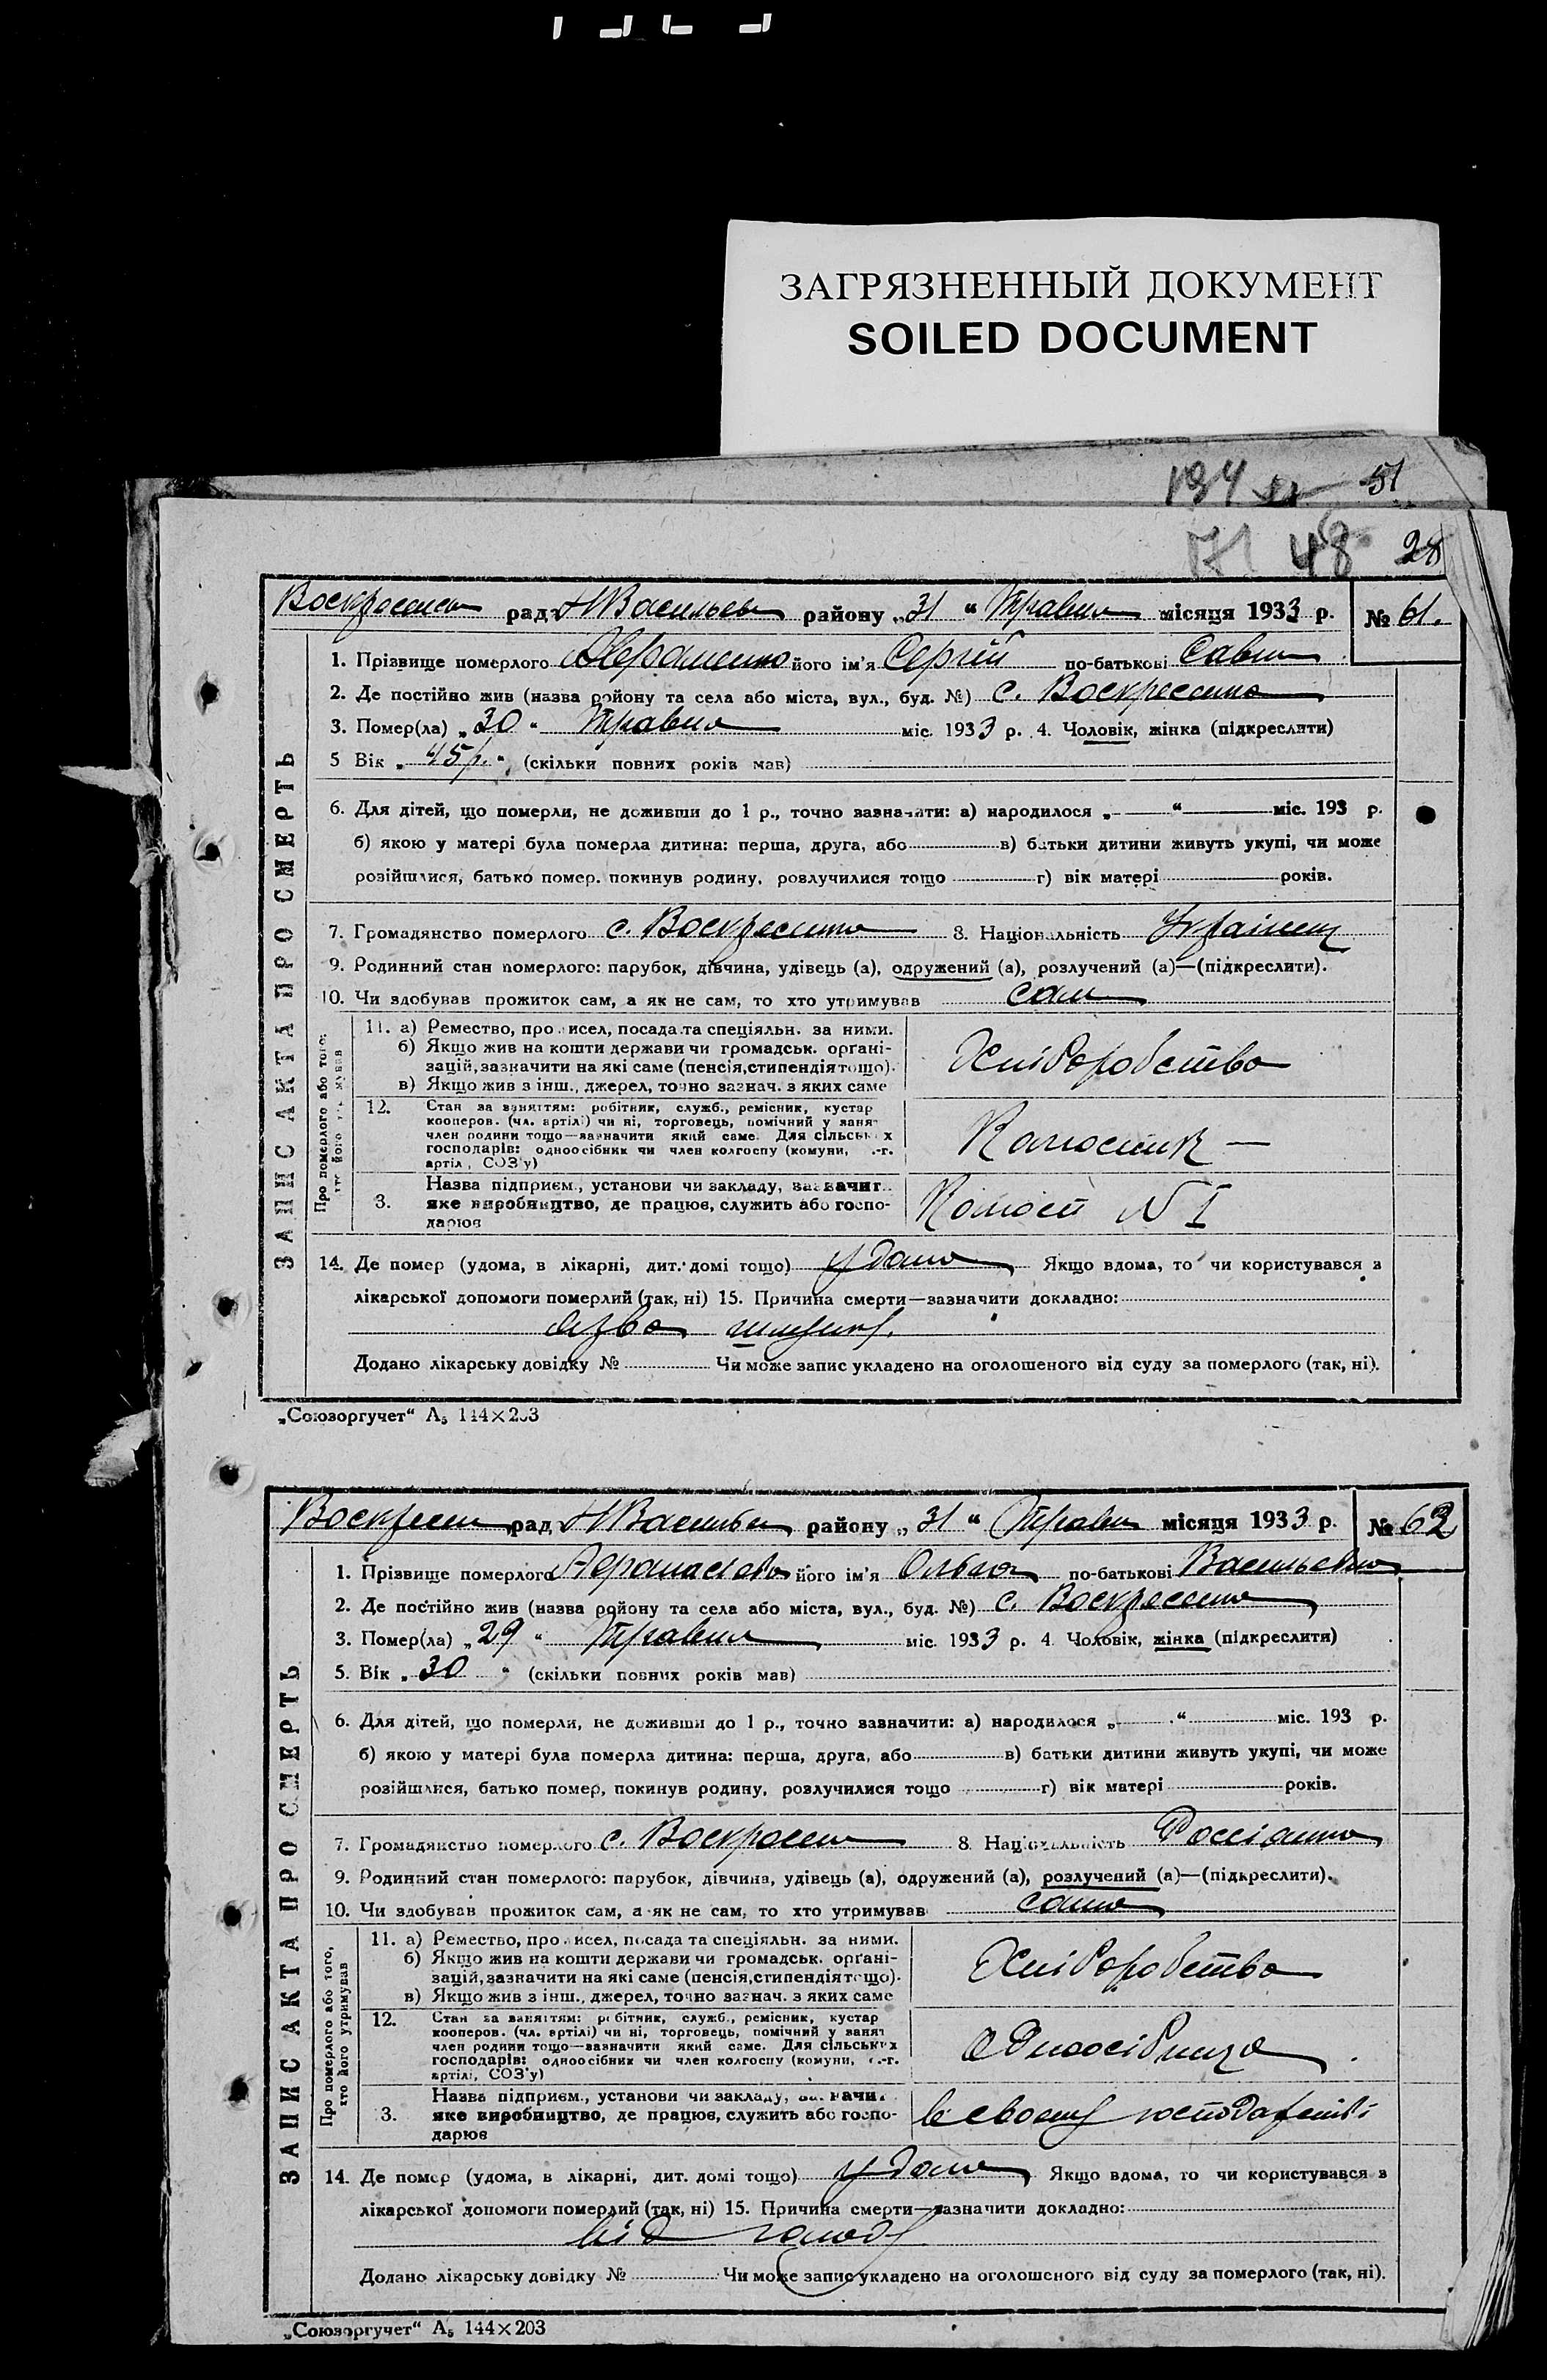 ЗАГРЯЗНЕННЫЙ ДОКУМЕНТ
SOILED DOCUMENT
194 51
171 48 28
ЗАПИС АКТА ПРО СМЕРТЬ
рада НВасильев району „31“ Травня місяця 1933 р. № 61.
1. Прізвище померлого його ім'я Сергій по-батькові Савич
2. Де постійно жив (назва району та села або міста, вул., буд. №) с. Воскресенка
3. Помер(ла) „30“ Травня міс. 1933 р. 4. Чоловік, жінка (підкреслити)
5 Вік „45р.“ (скільки повних років мав)
6. Для дітей, що померли, не доживши до 1 р., точно зазначити: а) народилося „ “ міс. 193 р.
б) якою у матері була померла дитина: перша, друга, або в) батьки дитини живуть укупі, чи може
розійшлися, батько помер, покинув родину, розлучилися тощо г) вік матері років.
7. Громадянство померлого с. Воскресенка 8. Національність Українец
9. Родинний стан померлого: парубок, дівчина, удівець (а), одружений (а), розлучений (а)—(підкреслити).
10. Чи здобував прожиток сам, а як не сам, то хто утримував сам
Про померлого або того, хто його утримував
11. а) Ремество, промисел, посада та спеціяльн. за ними.
б) Якщо жив на кошти держави чи громадськ. органі-
зацій, зазначити на які саме (пенсія, стипендія тощо).
в) Якщо жив з інш., джерел, точно зазнач. з яких саме
Хліборобство
12. Стан за заняттям: робітник, служб., ремісник, кустар
кооперов. (чл. артілі) чи ні, торговець, помічний у занят
член родини тощо—зазначити який саме. Для сільських
господарів: одноосібник чи член колгоспу (комуни, с.-г.
артіл, СОЗ'у)
Колгосник —
3. Назва підприєм., установи чи закладу, зазначит.
яке виробництво, де працює, служить або госпо-
дарює
Колгосп N I
14. Де помер (удома, в лікарні, дит. домі тощо) у дома Якщо вдома, то чи користувався з
лікарської допомоги померлий (так, ні) 15. Причина смерти—зазначити докладно:
язва шлунку.
Додано лікарську довідку № Чи може запис укладено на оголошеного від суду за померлого (так, ні).
„Союзоргучет“ А₅ 144×203
ЗАПИС АКТА ПРО СМЕРТЬ
рад НВасильев району „31“ Травня місяця 1933 р. № 62
1. Прізвище померлого Афанасієва його ім'я Ольга по-батькові Васильевна
2. Де постійно жив (назва району та села або міста, вул., буд. №) с. Воскресенка
3. Помер(ла) „29“ Травня міс. 1933 р. 4. Чоловік, жінка (підкреслити)
5. Вік „30“ (скільки повних років мав)
6. Для дітей, що померли, не доживши до 1 р., точно зазначити: а) народилося „ “ міс. 193 р.
б) якою у матері була померла дитина: перша, друга, або в) батьки дитини живуть укупі, чи може
розійшлися, батько помер, покинув родину, розлучилися тощо г) вік матері років.
7. Громадянство померлого с. Воскресен 8. Національність Россіянка
9. Родинний стан померлого: парубок, дівчина, удівець (а), одружений (а), розлучений (а)—(підкреслити).
10. Чи здобував прожиток сам, а як не сам, то хто утримував сама
Про померлого або того, хто його утримував
11. а) Ремество, промисел, посада та спеціяльн. за ними.
б) Якщо жив на кошти держави чи громадськ. органі-
зацій, зазначити на які саме (пенсія, стипендія тощо).
в) Якщо жив з інш., джерел, точно зазнач. з яких саме
Хліборобство
12. Стан за заняттям: робітник, служб., ремісник, кустар
кооперов. (чл. артілі) чи ні, торговець, помічний у занят
член родини тощо—зазначити який саме. Для сільських
господарів: одноосібник чи член колгоспу (комуни, с.-г.
артілі, СОЗ'у)
Одноосібниця
3. Назва підприєм., установи чи закладу, зазначи.
яке виробництво, де працює, служить або госпо-
дарює
в своему господарстві
14. Де помер (удома, в лікарні, дит. домі тощо) у дома Якщо вдома, то чи користувався з
лікарської допомоги померлий (так, ні) 15. Причина смерти—зазначити докладно:
від голоду
Додано лікарську довідку № Чи може запис укладено на оголошеного від суду за померлого (так, ні).
„Союзоргучет“ А₅ 144×203